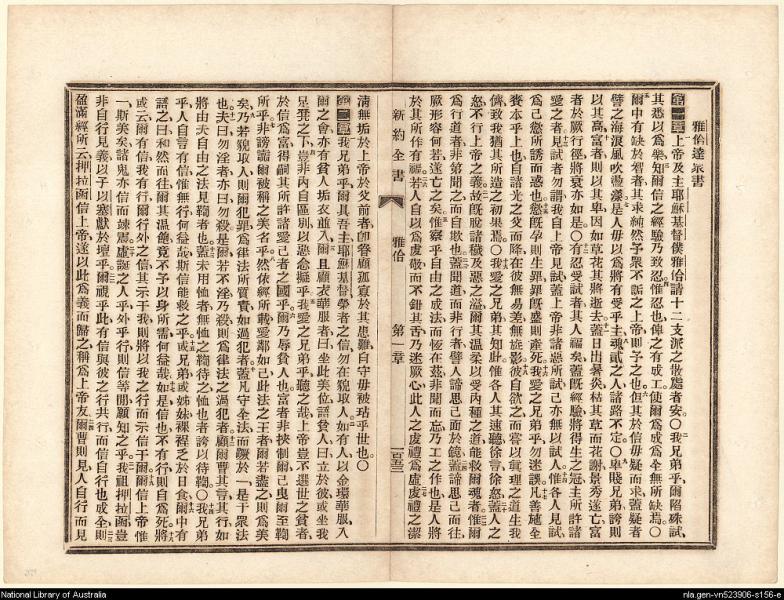 雅伯達衆書
第一章 上帝及主耶穌基督僕雅伯請十二支派之散處者安○我兄弟乎爾陷殊試
其悉以爲樂知爾信之經驗乃致忍惟忍也俾之有成工使爾爲成爲全無所缺焉○
爾中有缺於智者其求純然予衆不詬之上帝則予之也但其於信毋疑而求蓋疑者
譬之海浪風吹蕩漾是人毋以爲將有受乎主魂貳之人諸路不定○卑賤兄弟誇則
以其高富者則以其卑因如草花其將逝去蓋日出暑炎枯其草而花謝景秀遂亡富
者於厥行徑將衰亦如是○有忍受試者其人福矣蓋旣經驗將得生之冠主所許諸
愛之者見試者勿謂我自上帝見試蓋上帝非諸惡所試己亦無以試人惟各人見試
爲己慾所誘而惑也慾旣孕則生罪罪旣盛則產死我愛之兄弟乎勿迷誤凡善施全
賚本乎上也自諸光之父而降在彼無易差無旋影彼自欲之而嘗以眞理之道生我
儕致我猶其所造之初果焉○我愛之兄弟其知此惟各人其速聽徐言徐怒蓋人之
怒不行上帝之義故旣脫諸穢及惡之溢爾其温柔以受内種之道能救爾魂者惟爾
爲行道者非第聞之而自欺也蓋聞道而非行者譬人諦思己面於鏡蓋諦思己而往
厥形容何若遂亡之矣惟察乎自由之成法而恆在茲非聞而忘乃工之作也是人將
於其所作有福若人自以爲虔敬而不鉗其舌乃迷厥心此人之虔禮爲虛虔禮之潔
新約全書 雅伯 第一章 一百五三
清無垢於上帝於父前者卽眷顧孤寡於其患難自守毋被玷乎世也○
第二章 我兄弟乎爾具吾主耶穌基督榮者之信勿在貌取人如有人以金環華服入
爾之會亦有貧人垢衣並入爾且顧衣華服者曰坐此美位語貧人曰立於彼或坐我
足凳之下豈非内自區別以惡念擬乎我愛之兄弟乎聽之哉上帝豈不選世之貧者
於信爲富得嗣其所許諸愛己者之國乎爾乃辱貧人也富者非挾制爾己曳爾至鞫
所乎非謗讟爾被稱之美名乎然依經所載愛鄰如己此法之王者爾若盡之則爲美
矣乃若貌取人則爾犯罪爲律法所質責如過犯者蓋凡守全法而蹶於一是干衆法
也夫曰勿淫者亦曰勿殺是爾若不淫乃殺則爲律法之過犯者顧爾曹其言其行如
將由夫自由之法見鞫者也蓋未用恤者無恤之鞫待之恤也者誇以待鞫○我兄弟
乎人自言有信惟無行何益哉斯信能救之乎或兄弟或姊妹裸裎之於日食爾中有
語之曰和然而往爾其温飽竟不予以身所需何益哉如是信也不有行則自爲死將
或云爾有信我有行爾行外之信其示于我則將以我之行而示信于爾爾信上帝惟
一斯美矣諸鬼亦信而竦震虛誕之人乎外乎行則信等閒願知之乎我祖押拉函豈
非自行見義以子以塞獻於壇乎爾視乎此有信與彼之行共行而信自行也成全則
盈滿經所云押拉函信上帝遂以此爲義而歸之稱爲上帝友爾曹則見人自行而見
National Library of Australia
nla.gen-vn523906-s156-e